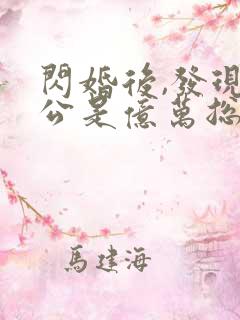 閃婚後,發現
公是億萬總
馬建海